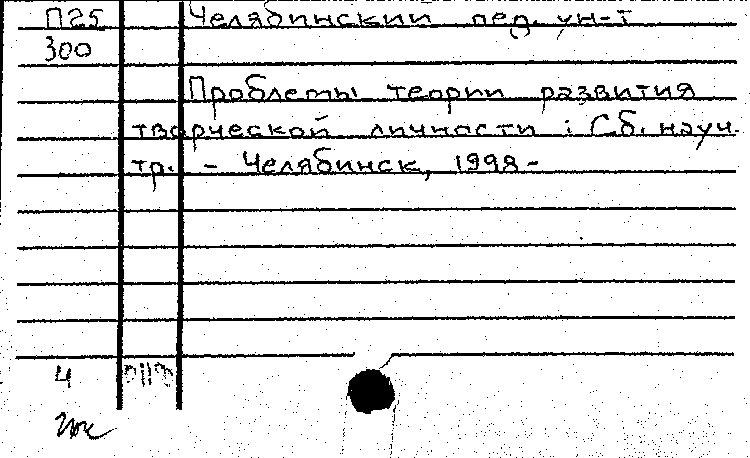 П25 Челябинский пед. ун-т
300
Проблемы теории развития
творческой личности : Сб. науч.
тр. - Челябинск, 1998-
4